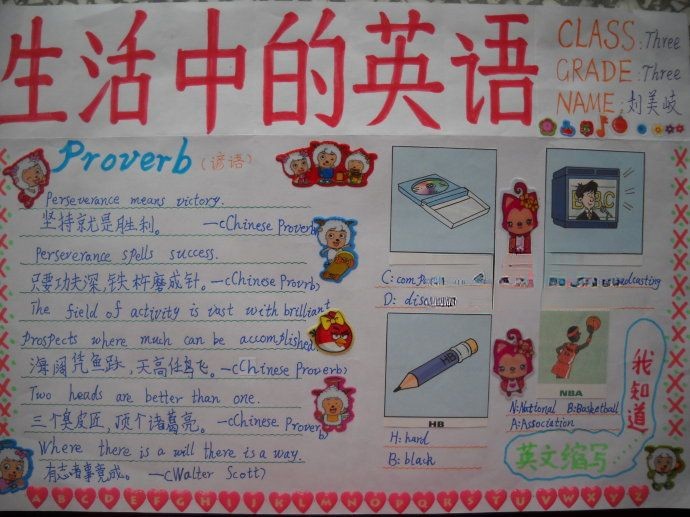 生活中的英语
CLASS: Three
GRADE: Three
NAME: 刘美岐
Proverb (谚语)
Perseverance means victory.
坚持就是胜利。 —cChinese Proverb)
Perseverance spells success.
只要功夫深,铁杵磨成针。—cChinese Provrb)
The field of activity is vast with brilliant
prospects where much can be accomplished.
海阔凭鱼跃,天高任鸟飞。—cChinese Proverb)
Two heads are better than one.
三个臭皮匠,顶个诸葛亮。—cChinese Proverb)
Where there is a will there is a way.
有志者事竟成。 —cWalter Scott)
C: com
D: disc
HB
H: hard
B: black
NBA
N: National B: Basketball
A: Association
我知道
英文缩写
A B C D E F G H I J K L M N O P Q R S T U V W X Y Z